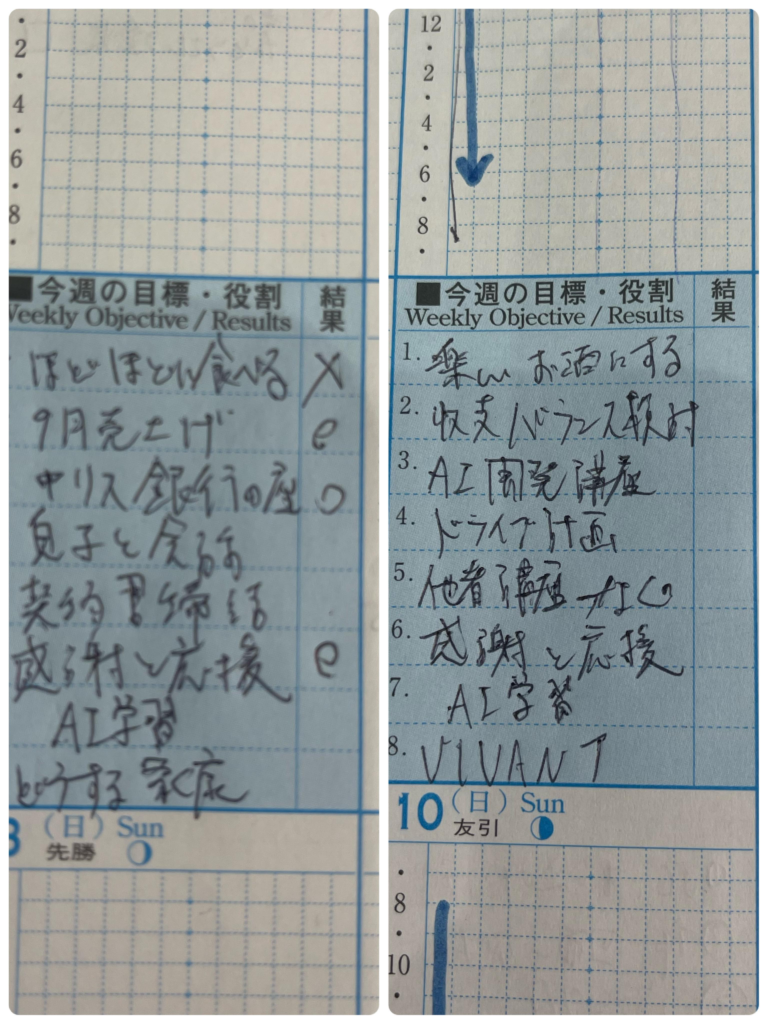 2
4
6
8
■今週の目標・役割 結果
Weekly Objective / Results
ほどほどに食べる ×
9月売上げ
中リス銀行の座 ○
息子と会話
契約書締結
感謝と応援
AI学習
どうする家康
3 (日) Sun
先勝
12
2
4
6
8
■今週の目標・役割 結果
Weekly Objective / Results
1. 楽しいお酒にする
2. 収支バランス検討
3. AI開発講座
4. ドライブ計画
5. 他者講座
6. 感謝と応援
7. AI学習
8. VIVANT
10 (日) Sun
友引
8
10